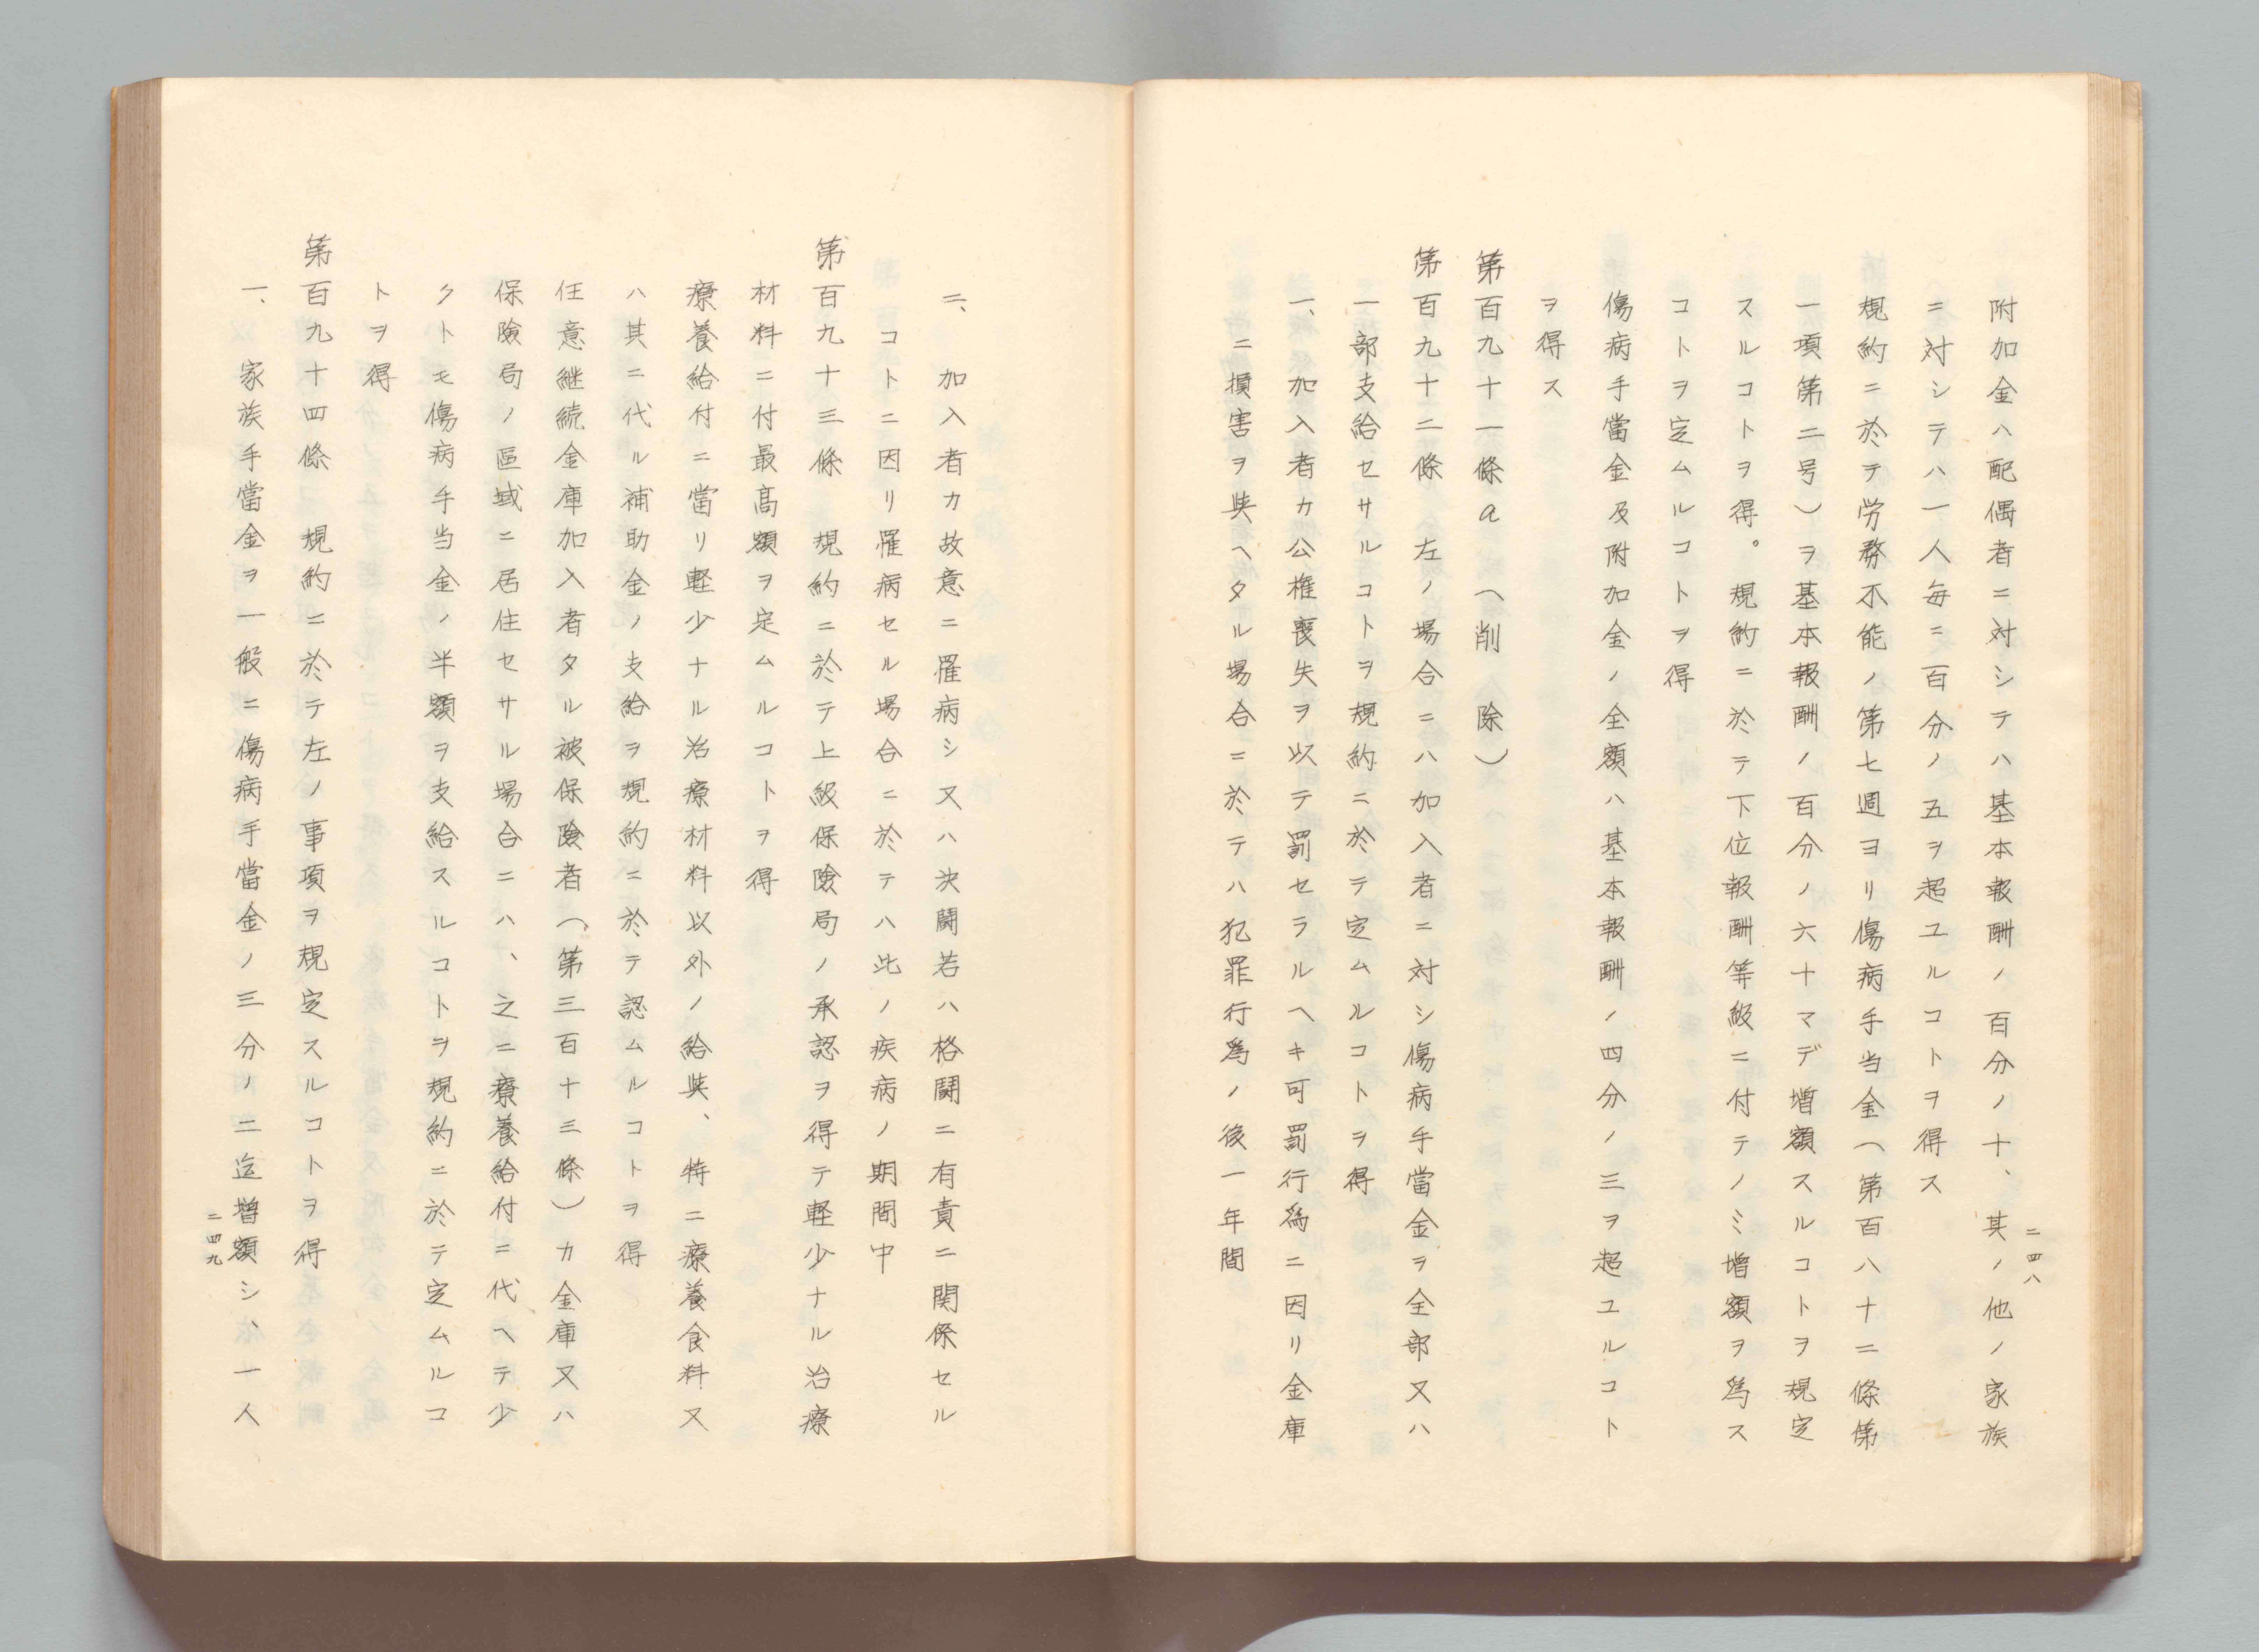 二四八
附加金ハ配偶者ニ対シテハ基本報酬ノ百分ノ十、其ノ他ノ家族
ニ対シテハ一人毎ニ百分ノ五ヲ超ユルコトヲ得ス
規約ニ於テ労務不能ノ第七週ヨリ傷病手当金（第百八十二條第
一項第二号）ヲ基本報酬ノ百分ノ六十マデ増額スルコトヲ規定
スルコトヲ得。規約ニ於テ下位報酬等級ニ付テノミ増額ヲ為ス
コトヲ定ムルコトヲ得
傷病手當金及附加金ノ全額ハ基本報酬ノ四分ノ三ヲ超ユルコト
ヲ得ス
第百九十一條a　（削除）
第百九十二條　左ノ場合ニハ加入者ニ対シ傷病手當金ヲ全部又ハ
一部支給セサルコトヲ規約ニ於テ定ムルコトヲ得
一、加入者カ公権喪失ヲ以テ罰セラルヘキ可罰行為ニ因リ金庫
ニ損害ヲ與ヘタル場合ニ於テハ犯罪行為ノ後一年間
二、加入者カ故意ニ罹病シ又ハ決闘若ハ格闘ニ有責ニ関係セル
コトニ因リ罹病セル場合ニ於テハ此ノ疾病ノ期間中
第百九十三條　規約ニ於テ上級保險局ノ承認ヲ得テ軽少ナル治療
材料ニ付最高額ヲ定ムルコトヲ得
療養給付ニ當リ軽少ナル治療材料以外ノ給與、特ニ療養食料又
ハ其ニ代ル補助金ノ支給ヲ規約ニ於テ認ムルコトヲ得
任意継続金庫加入者タル被保險者（第三百十三條）カ金庫又ハ
保險局ノ區域ニ居住セサル場合ニハ、之ニ療養給付ニ代ヘテ少
クトモ傷病手当金ノ半額ヲ支給スルコトヲ規約ニ於テ定ムルコ
トヲ得
第百九十四條　規約ニ於テ左ノ事項ヲ規定スルコトヲ得
一、家族手當金ヲ一般ニ傷病手當金ノ三分ノ二迄増額シ、一人
二四九